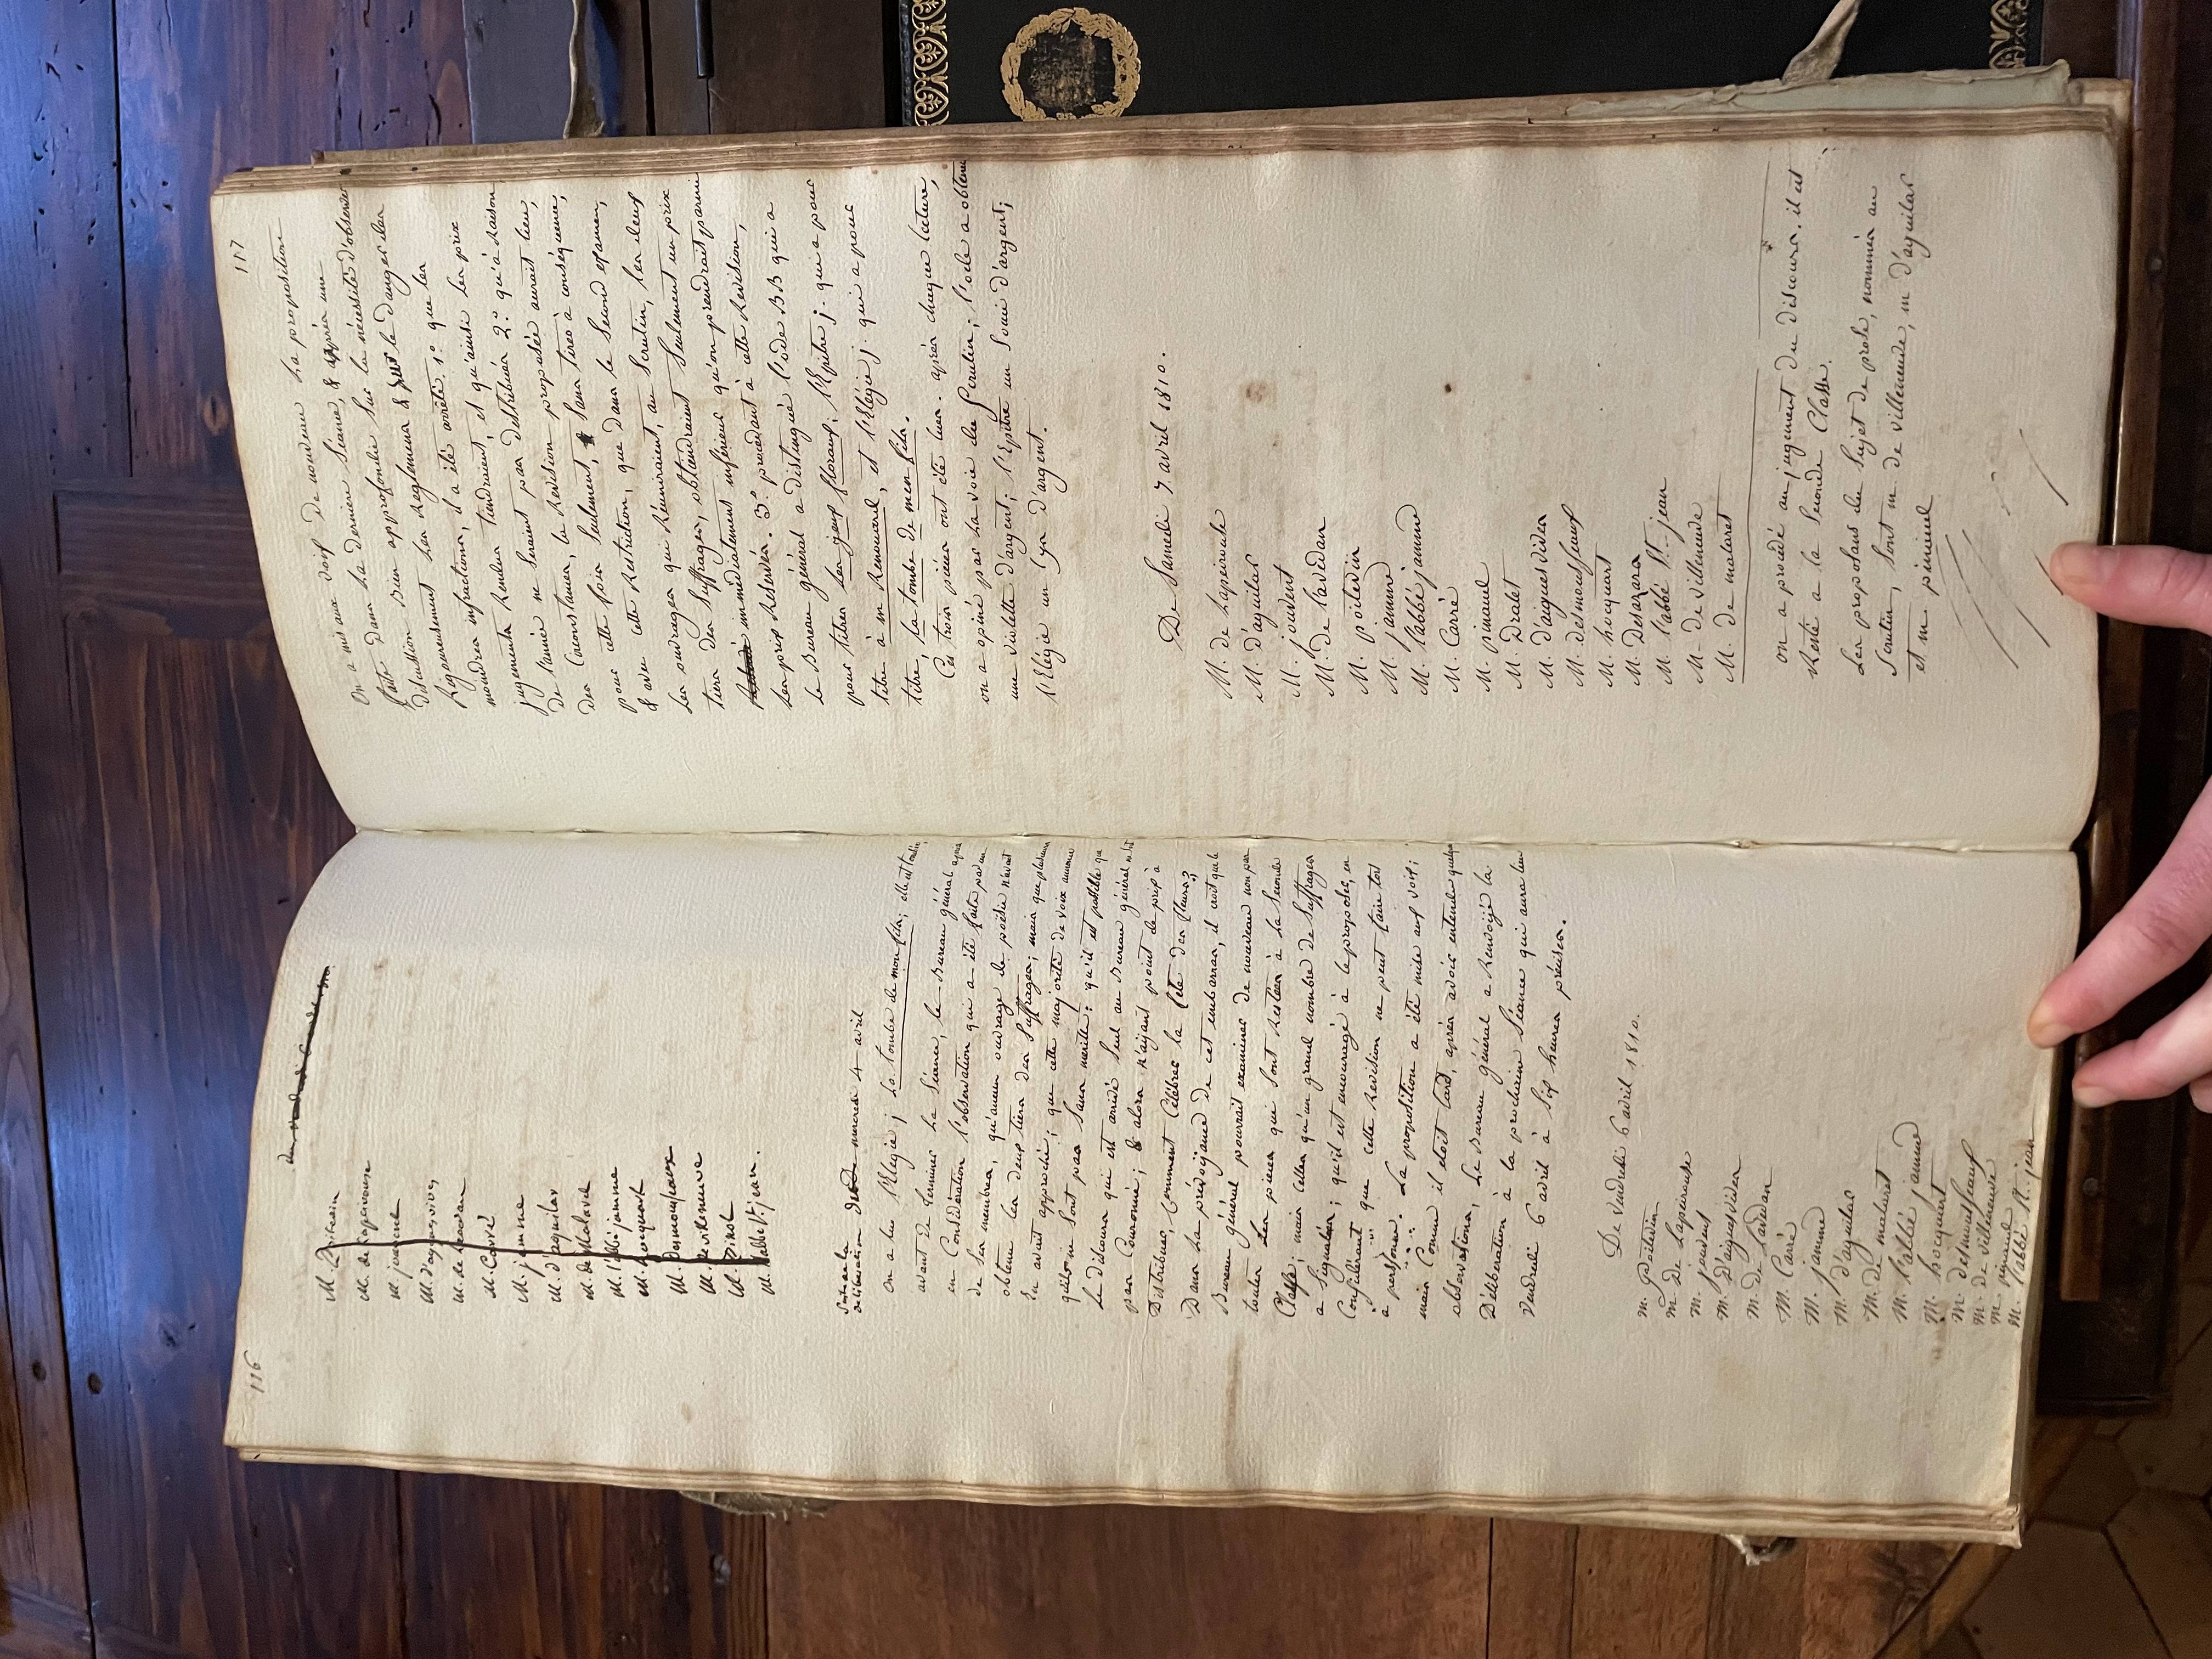 116
du vendredi
M. Poitevin
M. de Lapeirouse
M. jouvent
M. d'aiguesvives
M. de Lavedan
M. Carré
M. jamme
M. d'aguilar
M. de Malaret
M. l'abbé jamme
M. hocquart
M. desmouseaux
M. de villeneuve
M. Pinel
M. l'abbé St. jean.
Suite de la
délibération du mercredi 4 avril
on a lu l'Elegie j. La tombe de mon fils; elle est
avant de terminer la Séance, le Bureau général, après
en Considération l'observation qui a été faite par un
de ses membres, qu'aucun ouvrage de poësie n'avait
obtenu les deux tiers des Suffrages; mais que plusieurs
en avait approché; que cette majorité de voix annonce
qu'ils ne Sont pas Sans mérite; qu'il est possible que
le discours qui est arrivé Seul au Bureau général ne
pas Couronné; & alors n'ayant point de prix à
Distribuer, Comment Célébrer la fête des fleurs?
Dans la prévoyance de cet embarras, il croit que le
Bureau général pourrait examiner de nouveau non pas
toutes Les pieces qui Sont restées à la Seconde
Classe; mais celles qu'un grand nombre de Suffrages
a Signalées; qu'il est encouragé à le proposer, en
Considérant que cette révision ne peut faire tort
a personne. La proposition a été mise aux voix;
mais Comme il étoit tard, après avoir entendu quelques
observations, Le Bureau général a Renvoyé la
Délibération à la prochaine Séance qui aura lieu
vendredi 6 avril à Six heures précises.
De Vendredi 6 avril 1810.
M. Poitevin
M. De Lapeirouse
M. jouvent
M. D'aiguesvives
M. de Lavedan
M. Carré
M. jamme
M. d'aguilar
M. de malaret
M. l'abbé jamme
M. hocquart
M. desmouseaux
M. de villeneuve
M. pinaud
M. l'abbé St. jean
117
On a mis aux voix de nouveau La proposition
faite dans La derniere Séance, & après une
discussion Bien approfondie Sur la nécessité d'observer
Rigoureusement Les Reglemens & sur le danger des
moindres infractions, il a été arrêté 1.° que les
jugements Rendus tiendraient, et qu'ainsi les prix
de l'année ne Seraient pas distribués 2.° qu'à raison
des Circonstances, la Révision proposée aurait lieu,
pour cette fois Seulement, Sans tirer à conséquence,
& avec cette Restriction, que dans le Second examen,
Les ouvrages qui Réuniraient, au Scrutin, les deux
tiers des Suffrages, obtiendraient Seulement un prix
immédiatement inférieur qu'on prendrait parmi
Les prix Réservés. 3.° procédant à cette Révision,
le Bureau général a distingué l'ode BB qui a
pour titre Les jeux floraux; l'Epitre j. qui a pour
titre à m. Renouard, et l'Elégie j. qui a pour
titre, La tombe de mon fils.
Ces trois pieces ont été lues. après chaque lecture,
on a opiné par la voie du Scrutin; l'ode a obtenu
une violette d'argent; l'Epitre un Souci d'argent;
l'Elégie un Lys d'argent.
De Samedi 7 avril 1810.
M. de Lapeirouse
M. D'aguilar
M. jouvent
M. de lavédan
M. poitevin
M. jamme
M. l'abbé jamme
M. Carré
M. pinaud
M. Dralet
M. d'aigues vives
M. desmouseaux
M. hocquart
M. Desazars
M. l'abbé St. jean
M. de villeneuve
M. de malaret
on a procédé au jugement du discours. il est
Resté a la Seconde Classe.
Les proposans du Sujet de prose, nommés au
Scrutin, Sont m. de villeneuve, m d'aguilar
et m pinaud